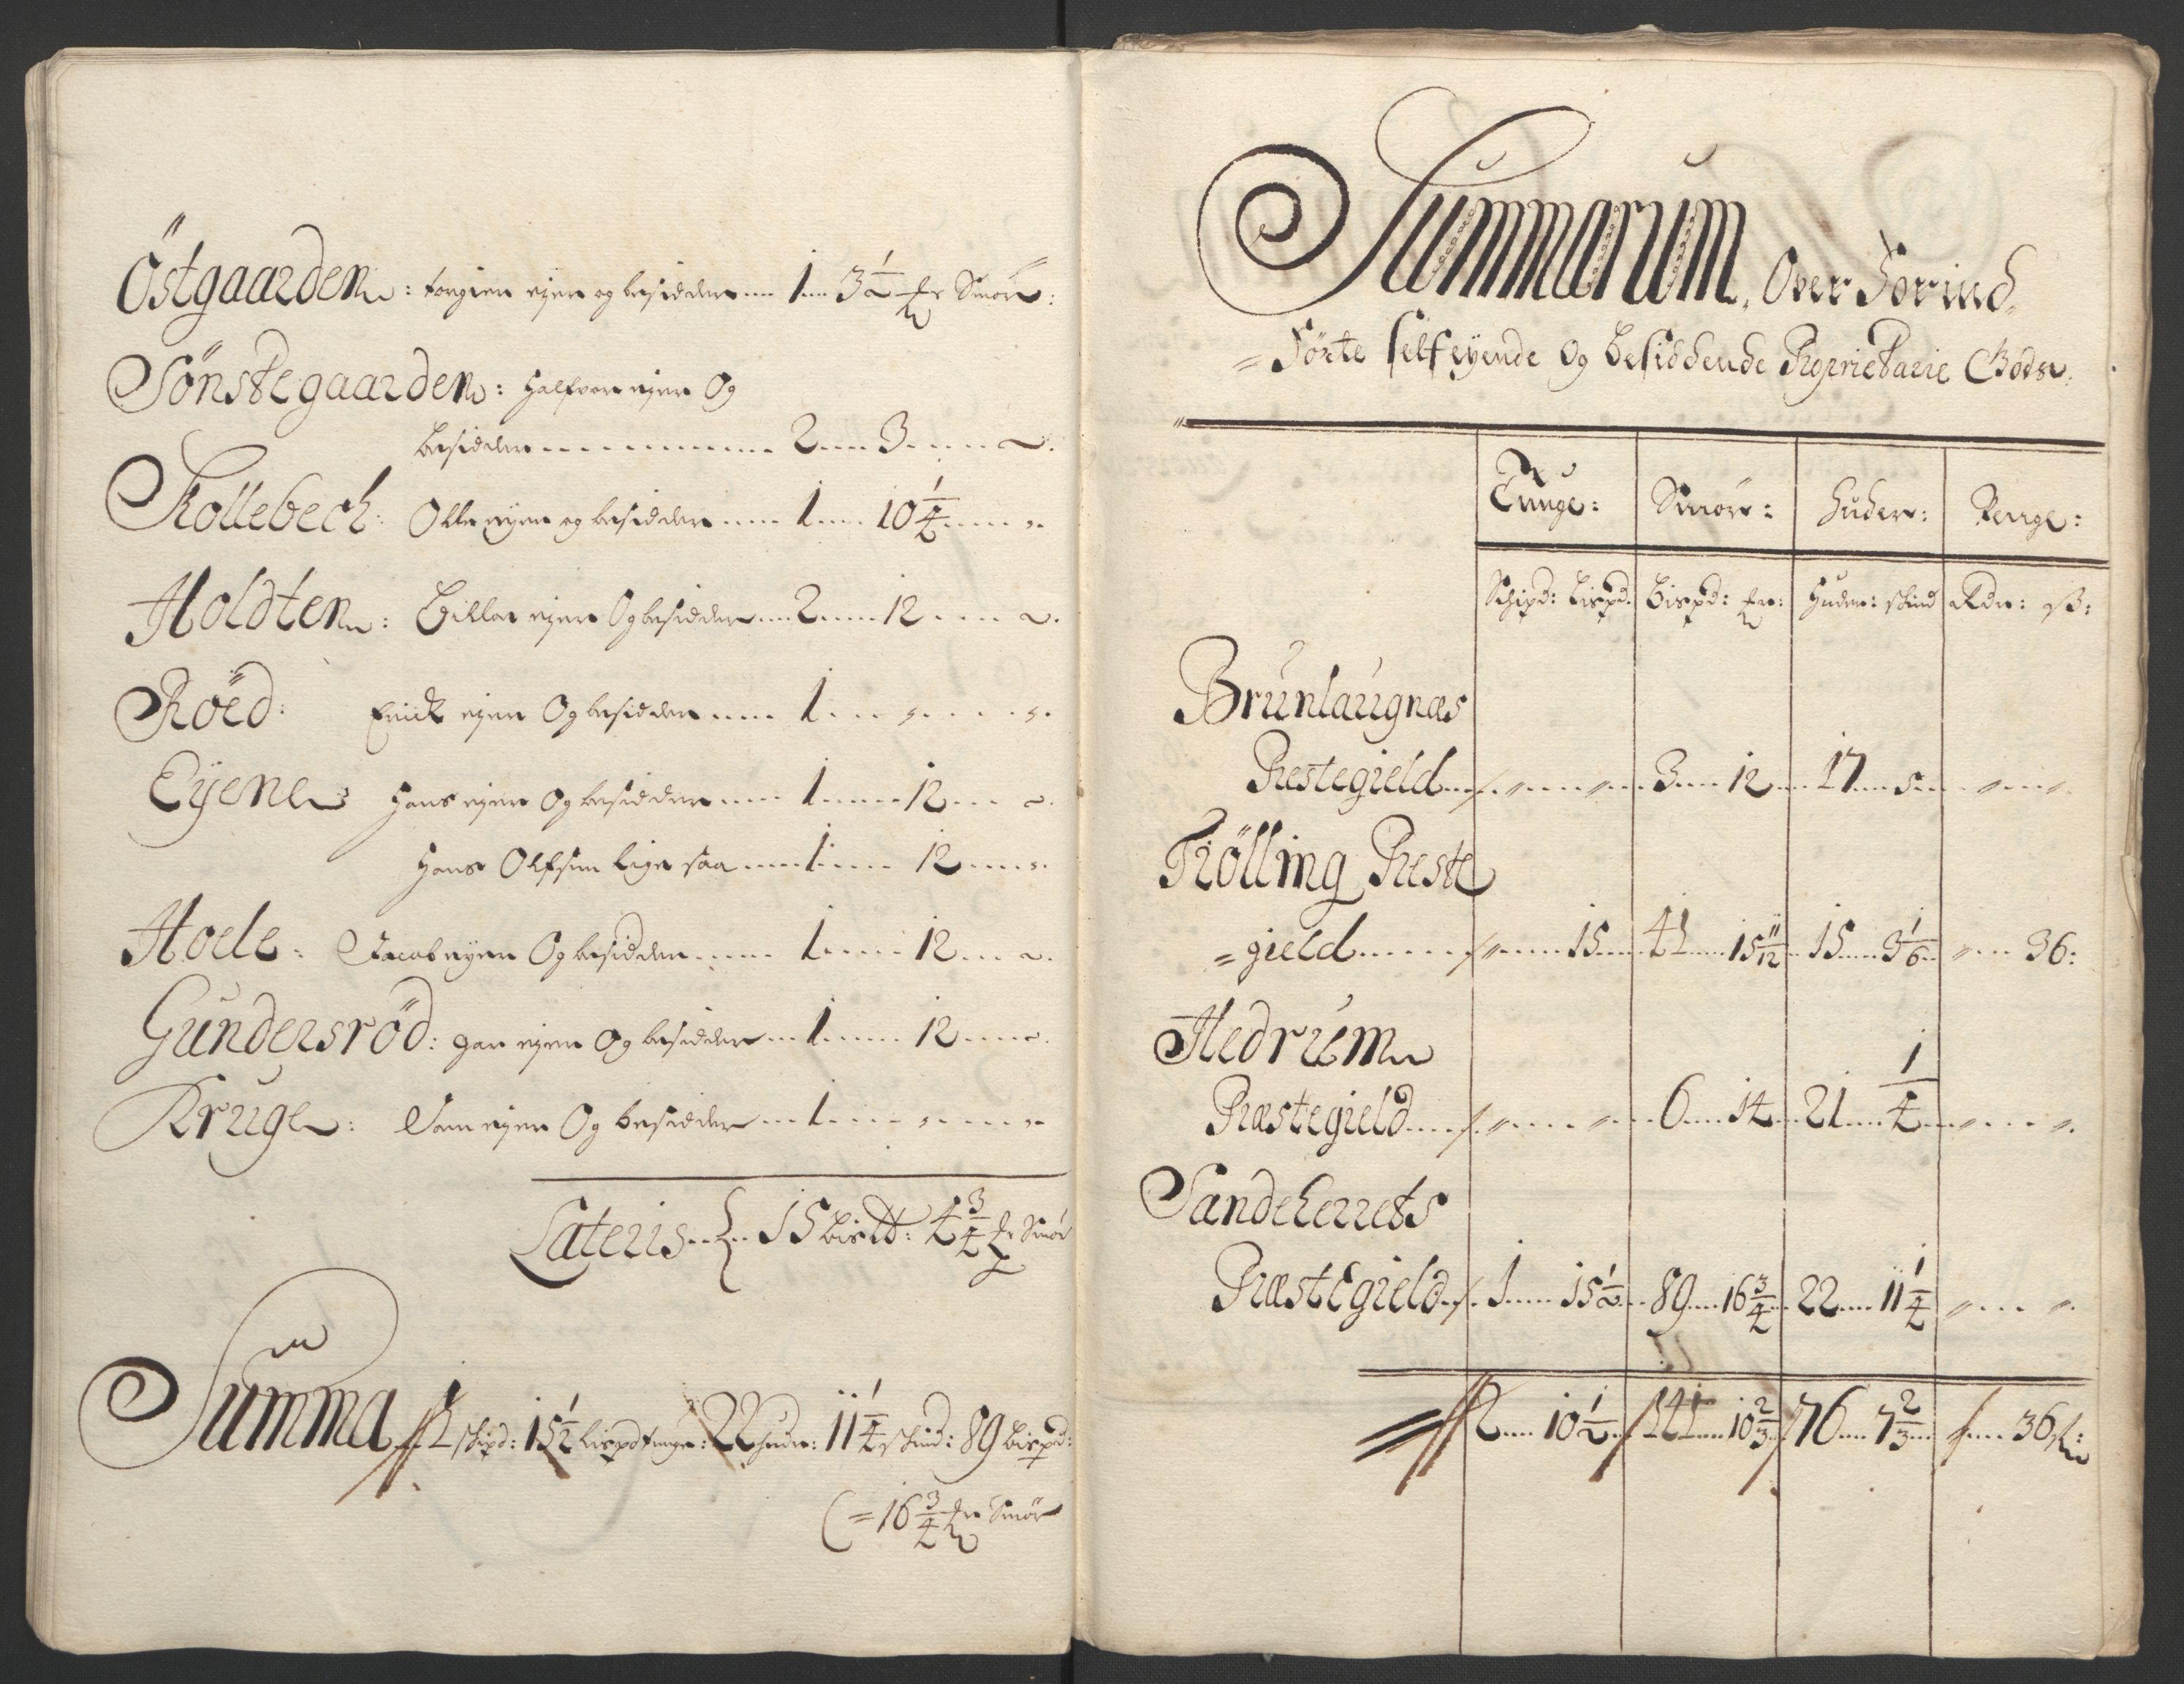 Östgaarden: torgier eyer og besidder 1 3 1/2 ℔r Smør:
Sönstegaarden: Halfvor eyer Og
besidder 2 3
Kollebech: Olle eyer og besidder 1 10 1/4
Holdten: eyer Og besidder 2 12
Röed: Erick eyer Og besidder 1
Eyene Hans eyer Og besidder 1 12
Hans Olfsen lige saa 1 12
Hoele: Jacob eyer Og besidder 1 12
Gundersröd: Hans eyer Og besidder 1 12
Kruge: eyer Og besidder 1
Lateris 15 bis℔: 4 3/4 ℔r Smør
Summa 1 skipd: 15 1/2 lispd tunge: 22 huder: 11 1/4 skind: 89 bispd:
(= 16 3/4 ℔r Smør
Summarum, Over Forind
= Förte selfeyende Og besiddende Proprietarie Gods
Tunge: Smör: Huder: Penge:
Schipd: lispd: Bispd: ℔r: Huder: skind Rdr: ß:
Brunlaugnæs
Prestegield 3 12 17 5
Tiölling Preste
=gield 15 41 15 11/12 15 3 1/6 36:
Hedrum
Præstegield 6 14 21 1/4
Sandeherrets
Præstegield 1 15 1/2 89 16 3/4 22 11 1/4
2 10 1/2 141 10 2/3 76 7 2/3 36 ß: